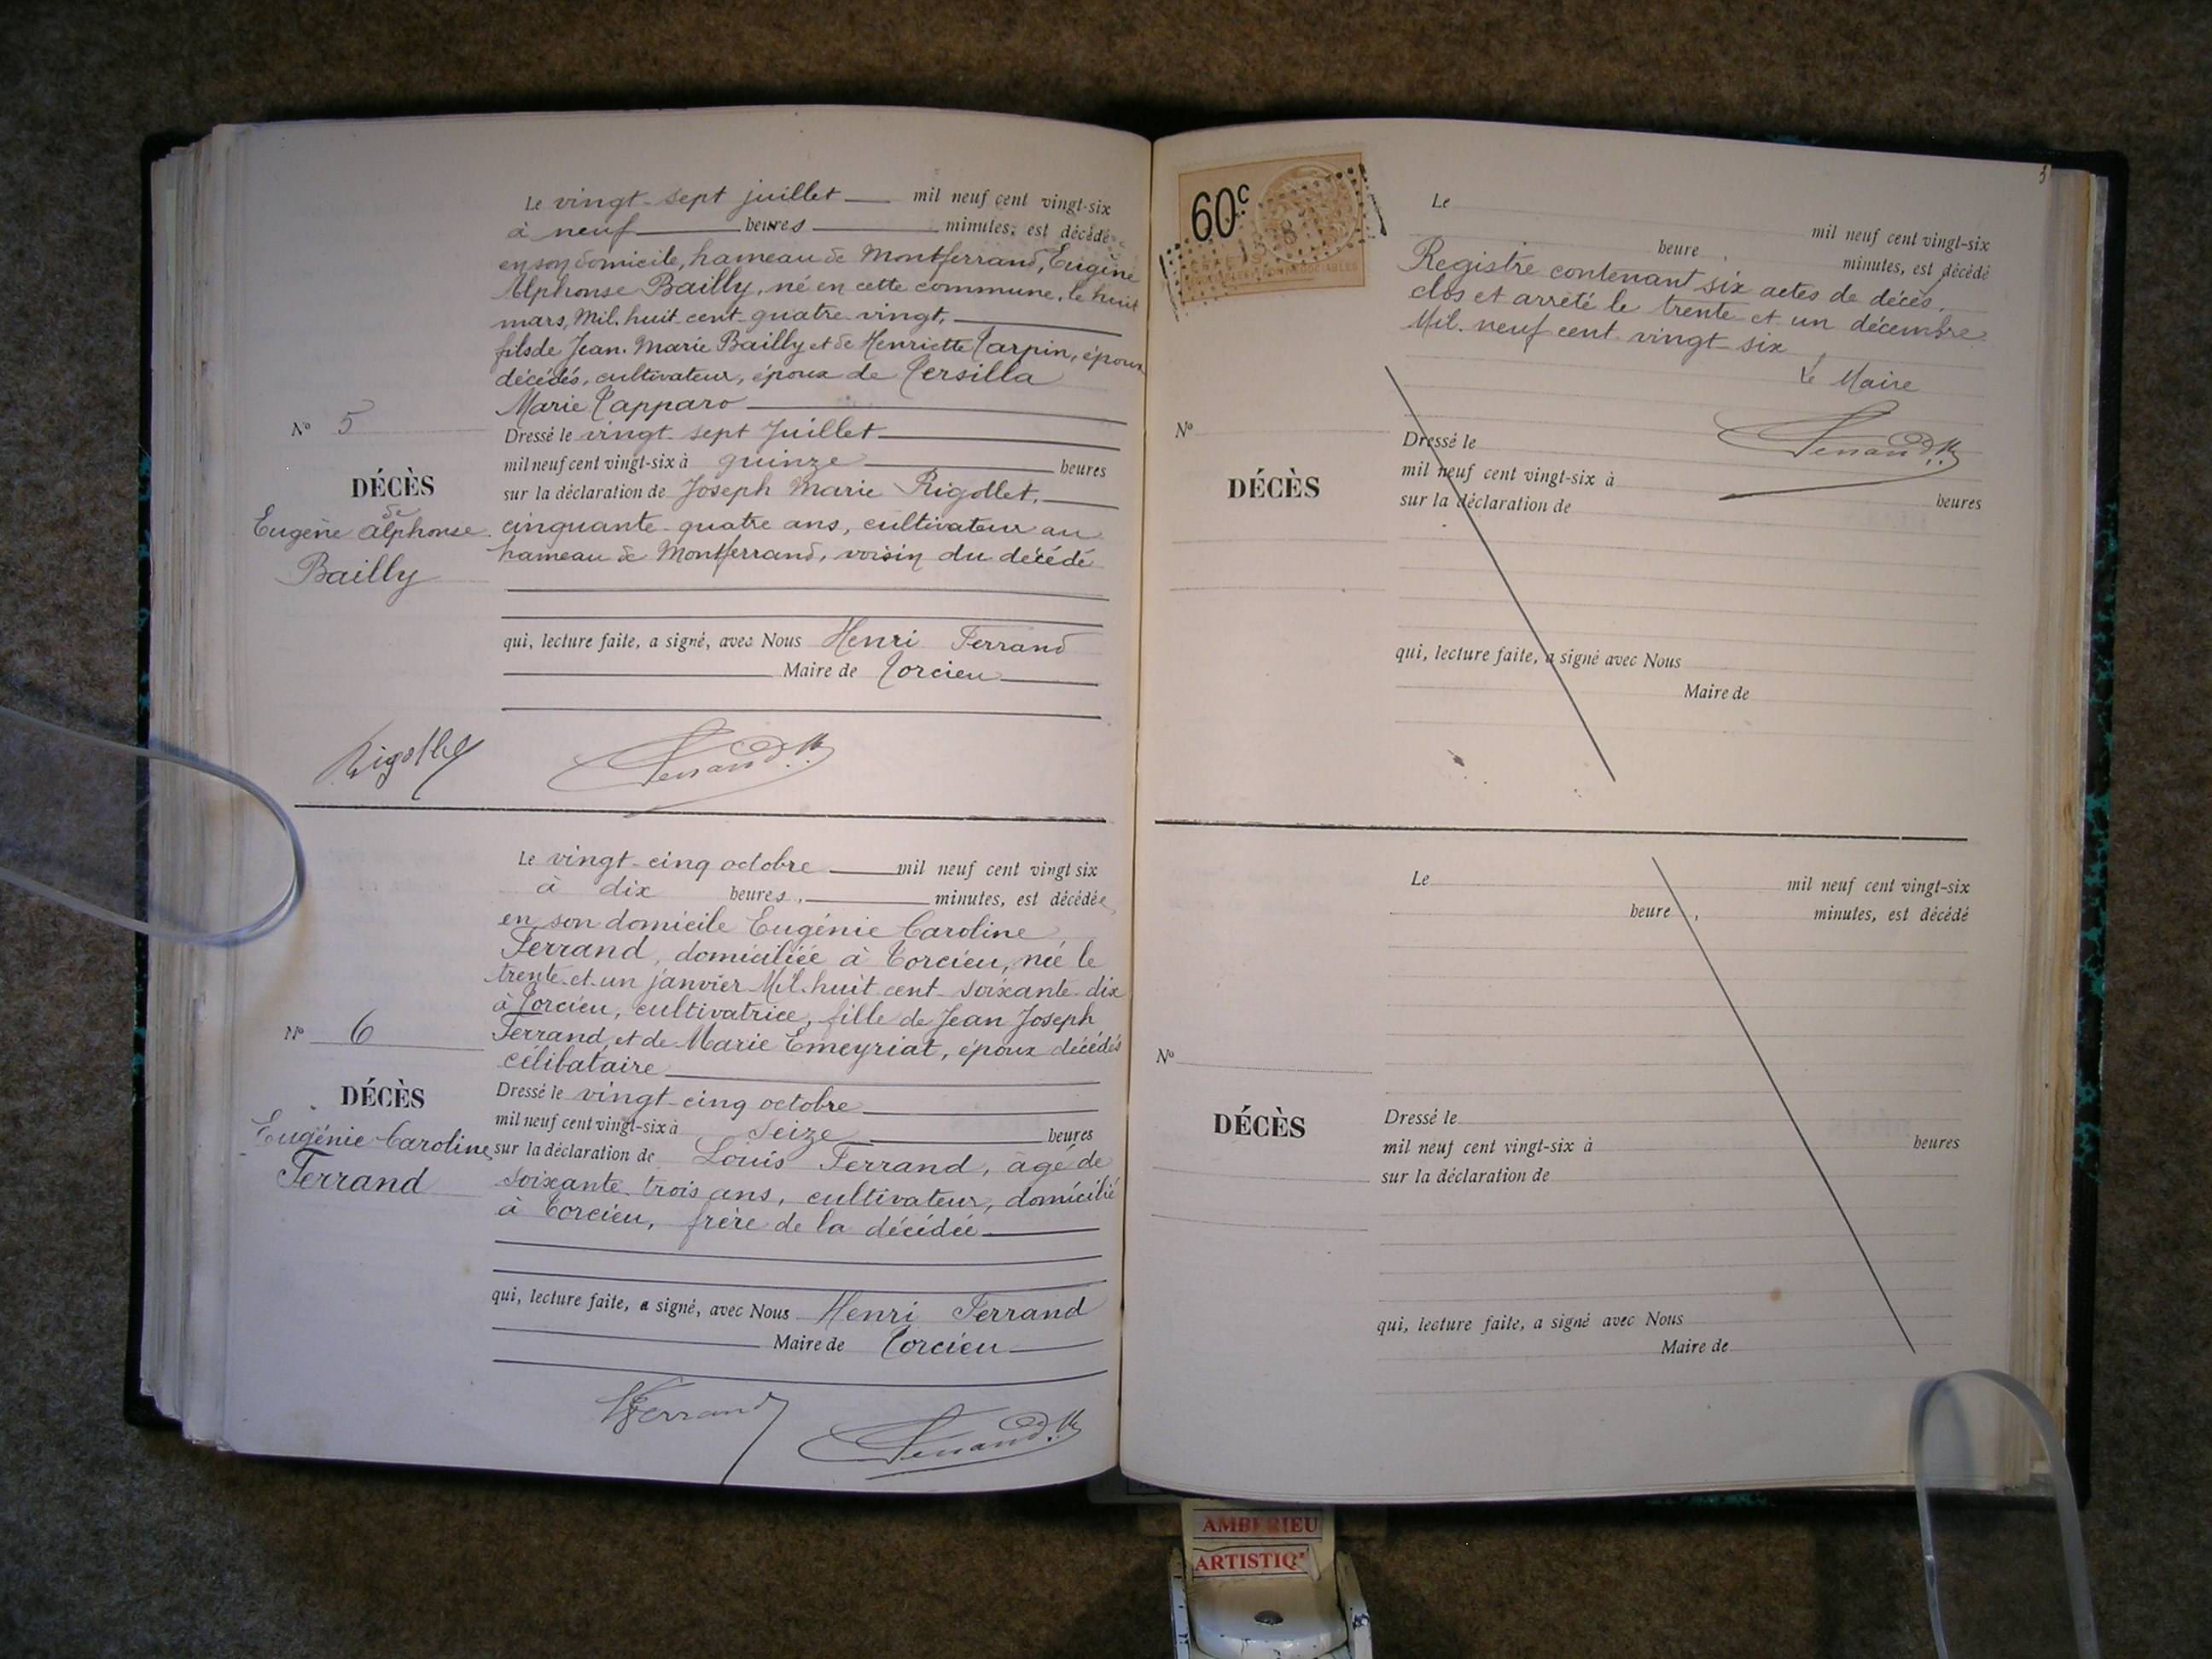 Le vingt-sept juillet mil neuf cent vingt-six
à neuf heures minutes, est décédé
en son domicile, hameau de Montferrand, Eugène
Alphonse Bailly, né en cette commune, le huit
mars, Mil. huit cent quatre vingt,
fils de Jean. Marie Bailly et de Henriette Carpin, époux
décédés, cultivateur, époux de Tersilla
Marie Tapparo
N° 5
Dressé le vingt-sept Juillet
mil neuf cent vingt-six à quinze heures
DÉCÈS
de
Eugène Alphonse
Bailly
sur la déclaration de Joseph Marie Rigollet,
cinquante-quatre ans, cultivateur au
hameau de Montferrand, voisin du décédé
qui, lecture faite, a signé, avec Nous Henri Ferrand
Maire de Torcieu
Rigollet Ferrand
Le vingt-cinq octobre mil neuf cent vingt six
à dix heures, minutes, est décédée
en son domicile Eugénie Caroline
Ferrand, domiciliée à Torcieu, née le
trente-et-un janvier Mil. huit cent soixante-dix
à Torcieu, cultivatrice, fille de Jean Joseph
Ferrand, et de Marie Emeyriat, époux décédés
célibataire
N° 6
DÉCÈS
Eugénie Caroline
Ferrand
Dressé le vingt-cinq octobre
mil neuf cent vingt-six à seize heures
sur la déclaration de Louis Ferrand, âgé de
soixante-trois ans, cultivateur, domicilié
à Torcieu, frère de la décédée
qui, lecture faite, a signé, avec Nous Henri Ferrand
Maire de Torcieu
Ferrand Ferrand
60c
3
Le mil neuf cent vingt-six
heure , minutes, est décédé
Registre contenant six actes de décès,
clos et arrêté le trente et un décembre
Mil. neuf cent vingt-six
Le Maire
Ferrand
N°
DÉCÈS
Dressé le
mil neuf cent vingt-six à heures
sur la déclaration de
qui, lecture faite, a signé avec Nous
Maire de
Le mil neuf cent vingt-six
heure , minutes, est décédé
N°
DÉCÈS
Dressé le
mil neuf cent vingt-six à heures
sur la déclaration de
qui, lecture faite, a signé avec Nous
Maire de
AMBERIEU
ARTISTIQ